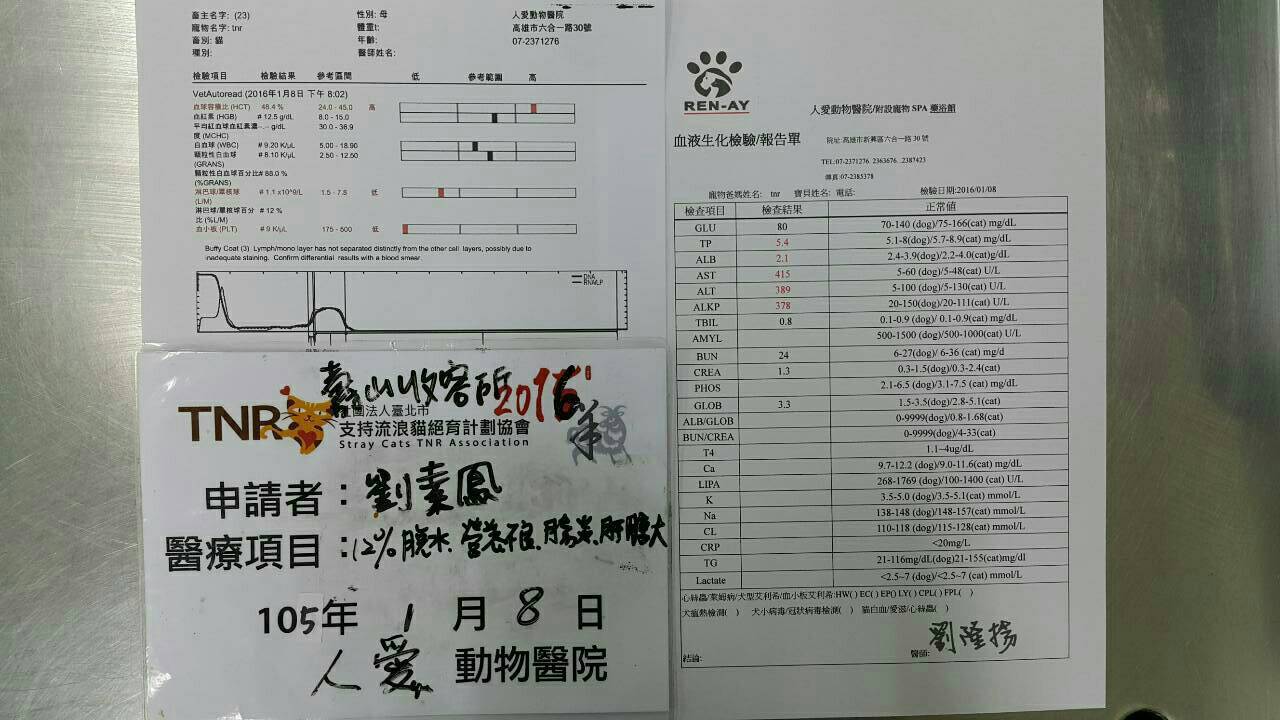 畜主名字: (23)
性別: 母
人愛動物醫院
寵物名字: tnr
體重t:
高雄市六合一路30號
畜別: 貓
年齡:
07-2371276
種別:
醫師姓名:
檢驗項目 檢驗結果 參考區間 低 參考範圍 高
VetAutoread (2016年1月8日 下午 8:02)
血球容積比 (HCT) 48.4 % 24.0 - 45.0 高
血紅素 (HGB) # 12.5 g/dL 8.0 - 15.0
平均紅血球血紅素濃 --.-- g/dL 30.0 - 36.9
度 (MCHC)
白血球 (WBC) # 9.20 K/µL 5.00 - 18.90
顆粒性白血球 # 8.10 K/µL 2.50 - 12.50
(GRANS)
顆粒性白血球百分比 # 88.0 %
(%GRANS)
淋巴球/單核球 # 1.1 x10^9/L 1.5 - 7.8 低
(L/M)
淋巴球/單核球百分 # 12 %
比 (%L/M)
血小板 (PLT) # 9 K/µL 175 - 500 低
Buffy Coat (3) Lymph/mono layer has not separated distinctly from the other cell layers, possibly due to
inadequate staining. Confirm differential results with a blood smear.
DNA
RNA/LP
壽山收容所 2016年
TNR
社團法人臺北市
支持流浪貓絕育計劃協會
Stray Cats TNR Association
申請者:劉素鳳
醫療項目:12%脫水、營養不良、腸炎、肝膽大
105年 1 月 8 日
人愛 動物醫院
REN-AY
人愛動物醫院/附設寵物 SPA 藥浴館
血液生化檢驗/報告單
院址:高雄市新興區六合一路 30 號
TEL:07-2371276 2363676 .2387423
傳真:07-2385378
寵物爸媽姓名: tnr 寶貝姓名: 電話:
檢驗日期:2016/01/08
檢查項目 檢查結果 正常值
GLU 80 70-140 (dog)/75-166(cat) mg/dL
TP 5.4 5.1-8(dog)/5.7-8.9(cat) mg/dL
ALB 2.1 2.4-3.9(dog)/2.2-4.0(cat)g/dL
AST 415 5-60 (dog)/5-48(cat) U/L
ALT 389 5-100 (dog)/5-130(cat) U/L
ALKP 378 20-150(dog)/20-111(cat) U/L
TBIL 0.8 0.1-0.9 (dog)/ 0.1-0.9(cat) mg/dL
AMYL 500-1500 (dog)/500-1000(cat) U/L
BUN 24 6-27(dog)/ 6-36 (cat) mg/d
CREA 1.3 0.3-1.5(dog)/0.3-2.4(cat)
PHOS 2.1-6.5 (dog)/3.1-7.5 (cat) mg/dL
GLOB 3.3 1.5-3.5(dog)/2.8-5.1(cat)
ALB/GLOB 0-9999(dog)/0.8-1.68(cat)
BUN/CREA 0-9999(dog)/4-33(cat)
T4 1.1~4ug/dL
Ca 9.7-12.2 (dog)/9.0-11.6(cat) mg/dL
LIPA 268-1769 (dog)/100-1400 (cat) U/L
K 3.5-5.0 (dog)/3.5-5.1(cat) mmol/L
Na 138-148 (dog)/148-157(cat) mmol/L
CL 110-118 (dog)/115-128(cat) mmol/L
CRP <20mg/L
TG 21-116mg/dL(dog)21-155(cat)mg/dl
Lactate <2.5~7 (dog)/<2.5~7 (cat) mmol/L
心絲蟲/萊姆病/犬型艾利希/血小板艾利希:HW( ) EC( ) EP( ) LY( ) CPL( ) FPL( )
犬瘟熱檢測( ) 犬小病毒/冠狀病毒檢測( ) 貓白血/愛滋/心絲蟲( )
結論:
醫師: 劉隆揚